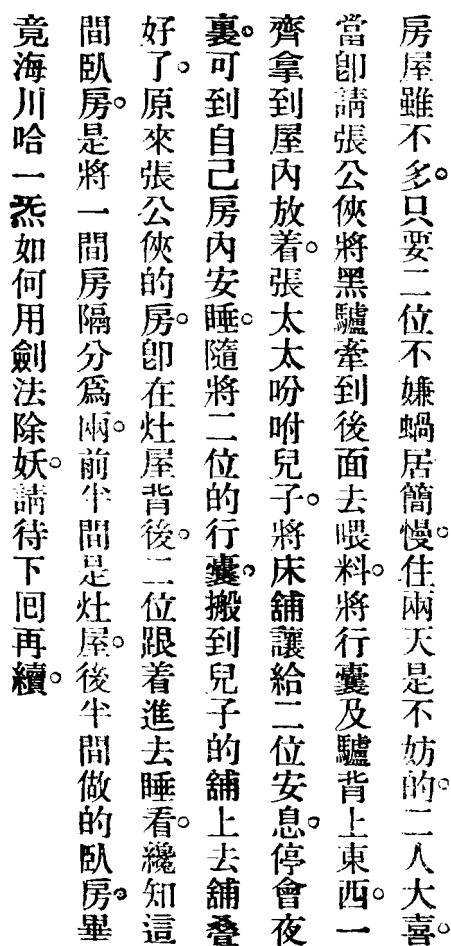 房屋雖不多。只要二位不嫌蝸居簡慢。住兩天是不妨的。二人大喜。
當卽請張公俠將黑驢牽到後面去喂料。將行囊及驢背上東西。一
齊拿到屋內放着。張太太吩咐兒子。將床舖讓給二位安息。停會夜
裏。可到自己房內安睡。隨將二位的行囊。搬到兒子的舖上去舖叠
好了。原來張公俠的房。卽在灶屋背後。二位跟着進去睡看。纔知這
間臥房。是將一間房隔分爲兩。前半間是灶屋。後半間做的臥房。畢
竟海川哈一炁如何用劍法除妖。請待下囘再續。